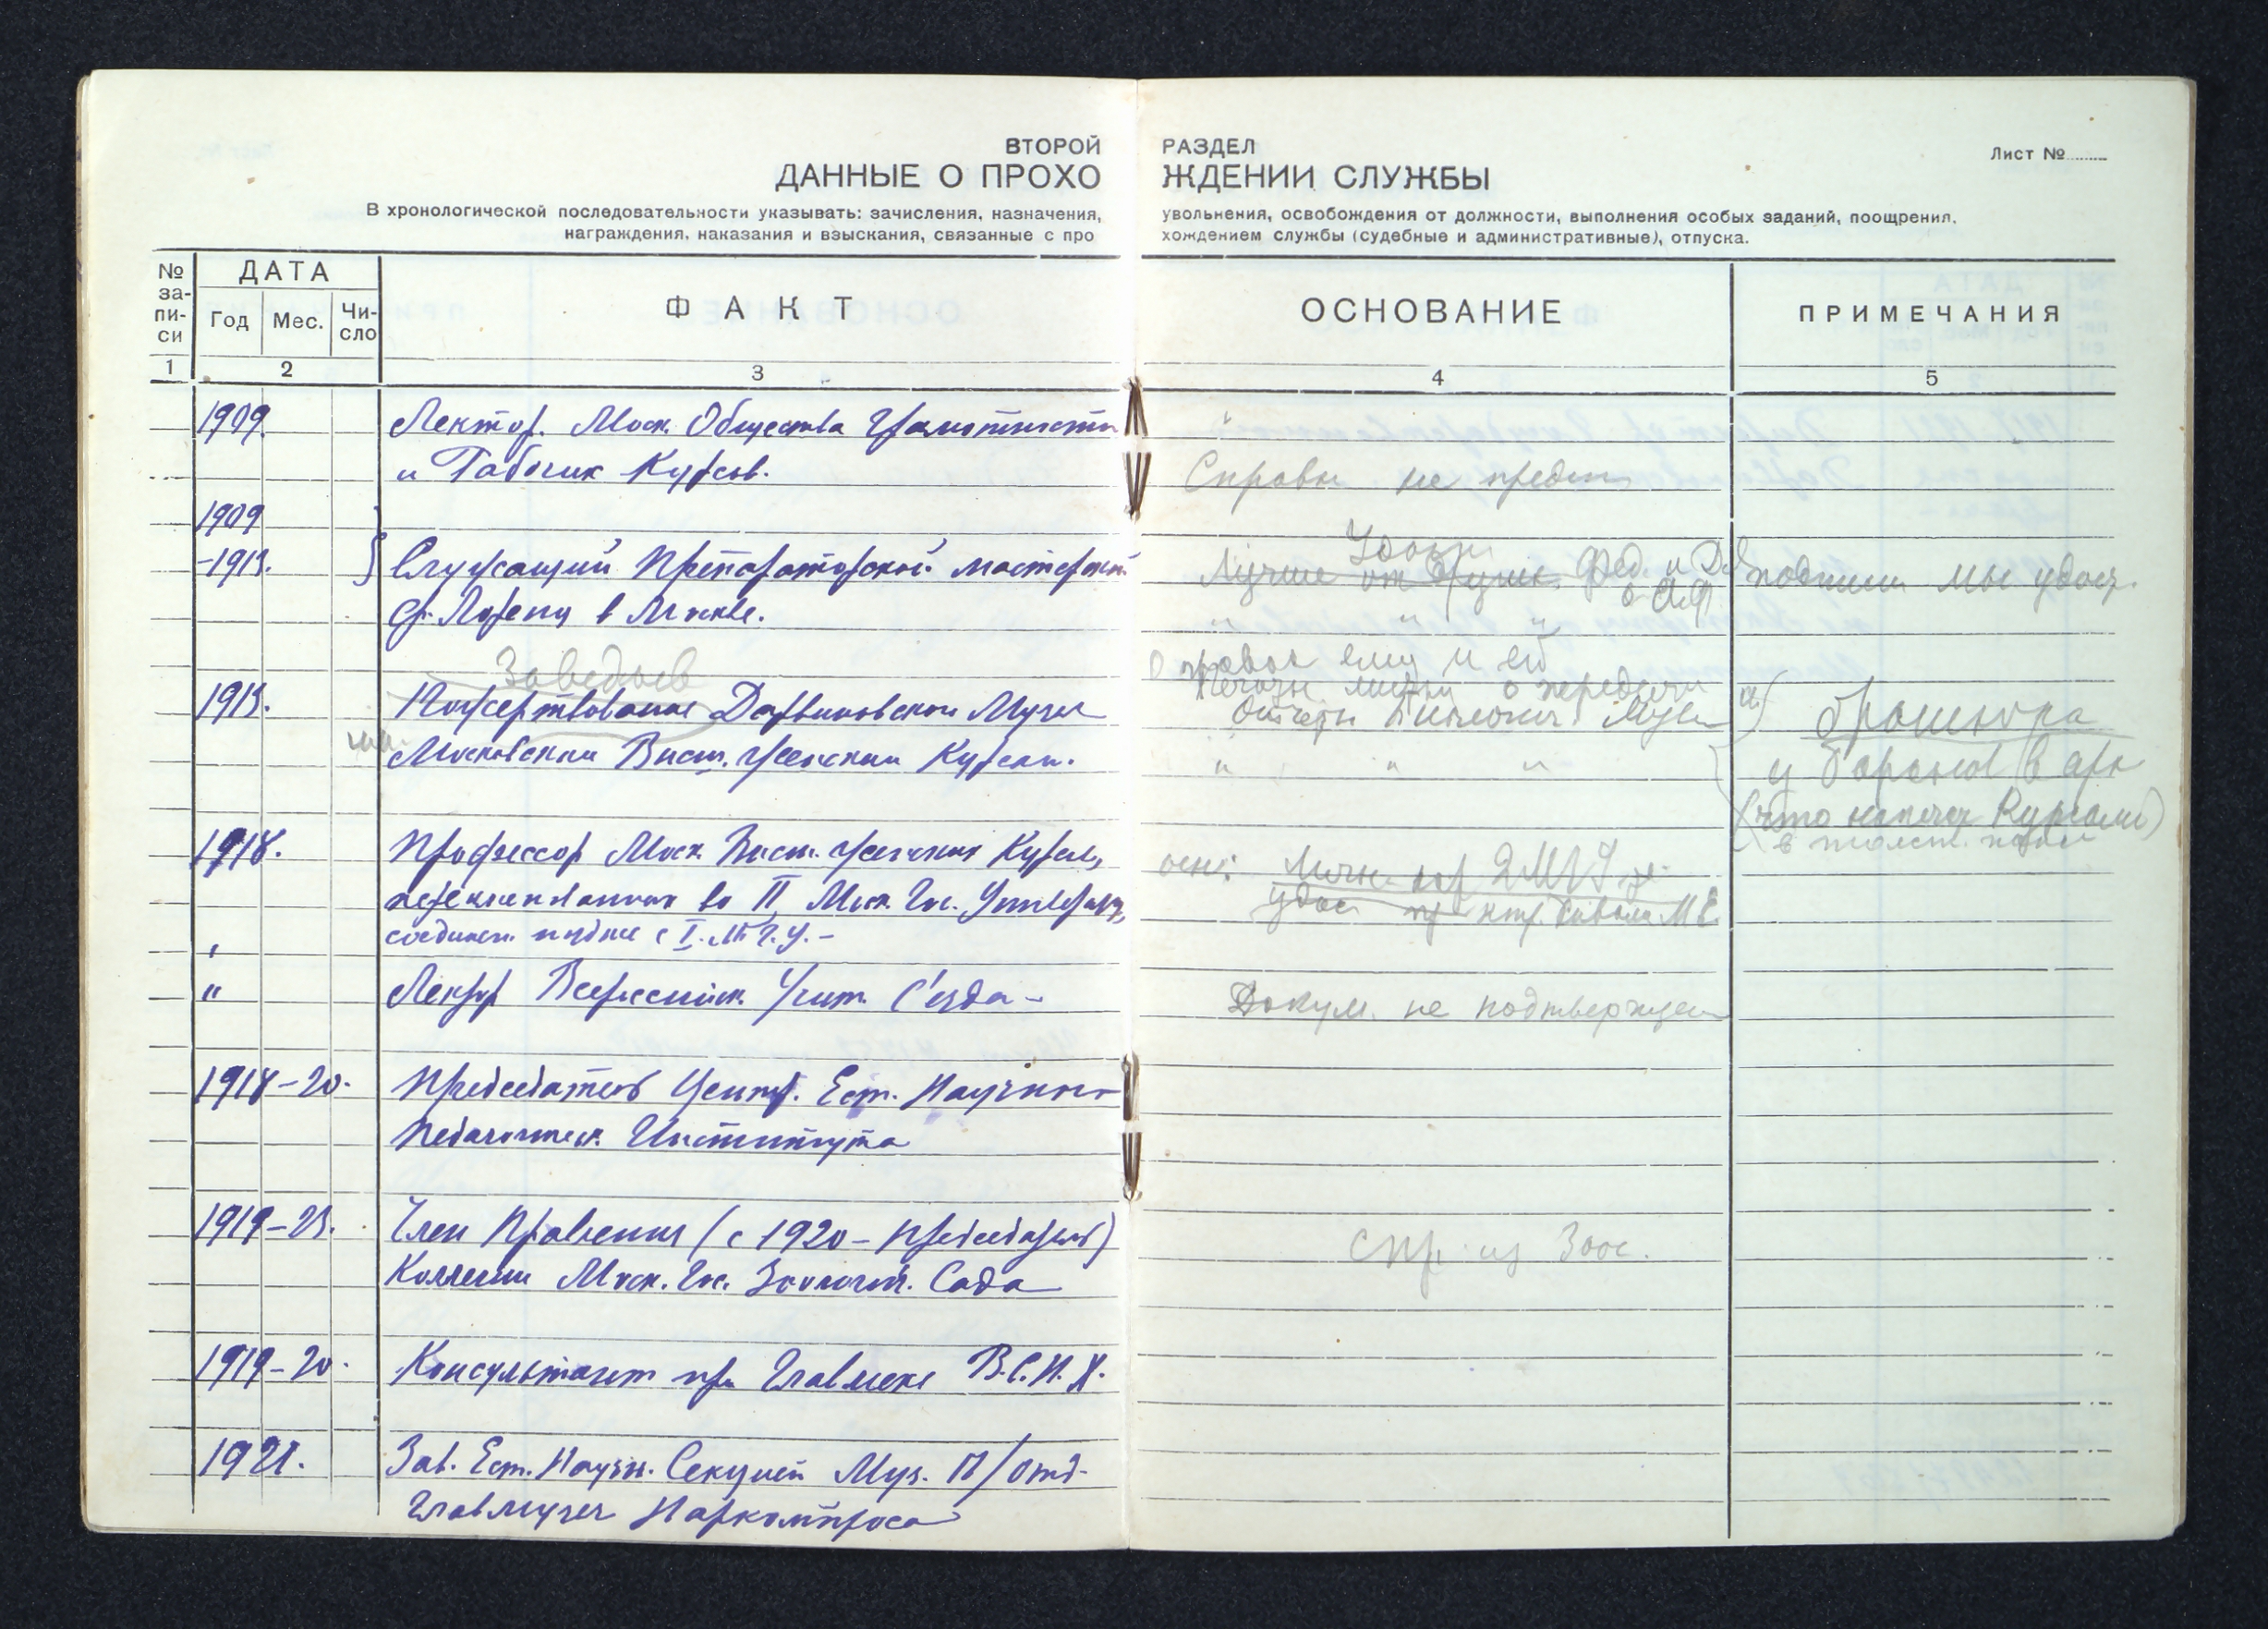 ВТОРОЙ РАЗДЕЛ
Лист №
ДАННЫЕ О ПРОХОЖДЕНИИ СЛУЖБЫ
В хронологической последовательности указывать: зачисления, назначения, увольнения, освобождения от должности, выполнения особых заданий, поощрения,
награждения, наказания и взыскания, связанные с прохождением службы (судебные и административные), отпуска.
№ за-пи-си
ДАТА
Год Мес. Чи-сло
ФАКТ
ОСНОВАНИЕ
ПРИМЕЧАНИЯ
1 2 3 4 5
1909. Лектор. Моск. Общества Грамотности
и Рабочик Курсов.
Справк не предст
1909
-1913. Служащий Препараторской мастерской
Ф. Лоренц в Москве.
Лучше от Ф.ед. и Д.
подпиши мы удост.
" " "
Заведыв
о правах ему и ей
1913. Пожертвование Дарвиновскои Музея
Печатн о передачи
Отчеты Музея
а) брошюра
Московским Высш. Женским Курсам.
" " "
у в арх
(что напеч Курсами)
1918. Профессор Моск. Высш. Женских Курсов,
осн:
2МГУ
переименованных во II Моск. Гос. Университ,
удост
соединен. позднее с I. М.Г.У. –
" Лектор Всероссийск. Учит. С'езда –
Докум. не подтвержден
1918–20. Председатель Центр. Ест. Научного
Педагогическ. Института
1919–23. Член Правления (с 1920 – Председатель)
Коллегии Моск. Гос. Зоологич. Сада
Спр. из Зоос.
1919–20. Консультант при Главмехе В.С.Н.Х.
1921. Зав. Ест. Научн. Секцией Муз. П/Отд.
Главмузея Наркомпроса